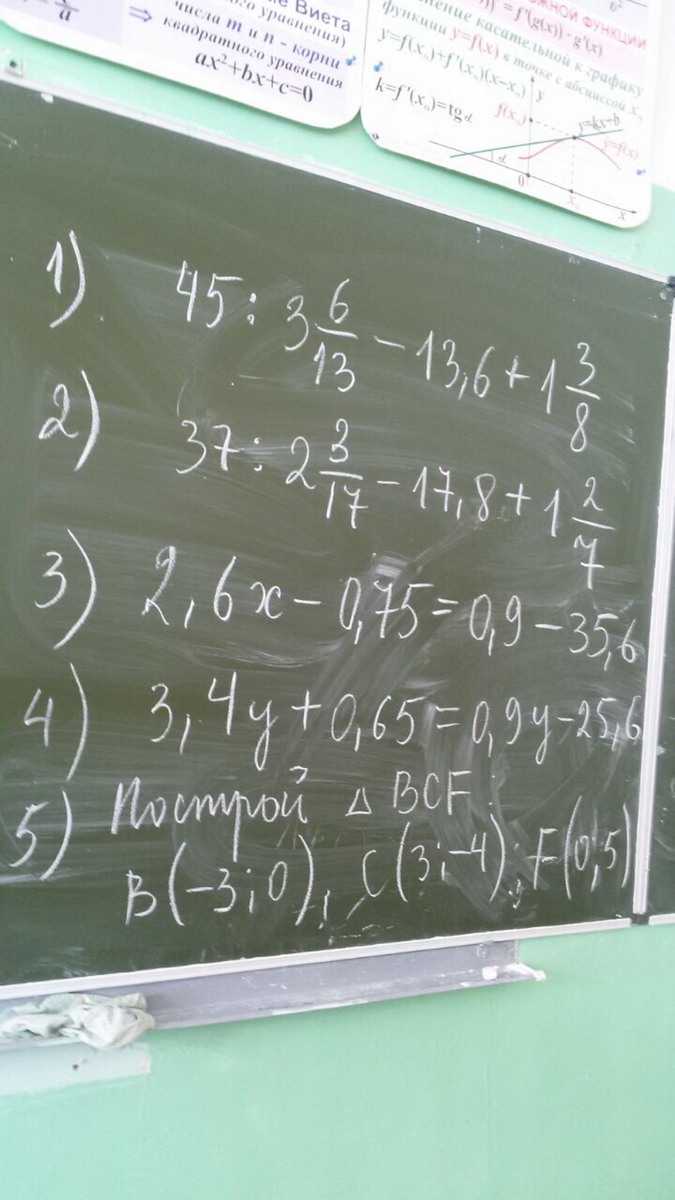 Виета
уравнения)
числа m и n - корни
квадратного уравнения
ax²+bx+c=0
ЖНОЙ ФУНКЦИИ
= f'(g(x)) · g'(x)
касательной к графику
функции y=f(x) в точке с абсциссой x₀
y=f(x₀)+f'(x₀)(x-x₀)
k=f'(x₀)=tgα
f(x₀)
y
y=kx+b
y=f(x)
α
0
x₀
x
1) 45 : 3 6/13 − 13,6 + 1 3/8
2) 37 : 2 3/17 − 17,8 + 1 2/7
3) 2,6x − 0,75 = 0,9 − 35,6
4) 3,4y + 0,65 = 0,9y − 25,6
5) Построй △ BCF
B(−3;0), C(3;−4); F(0;5)